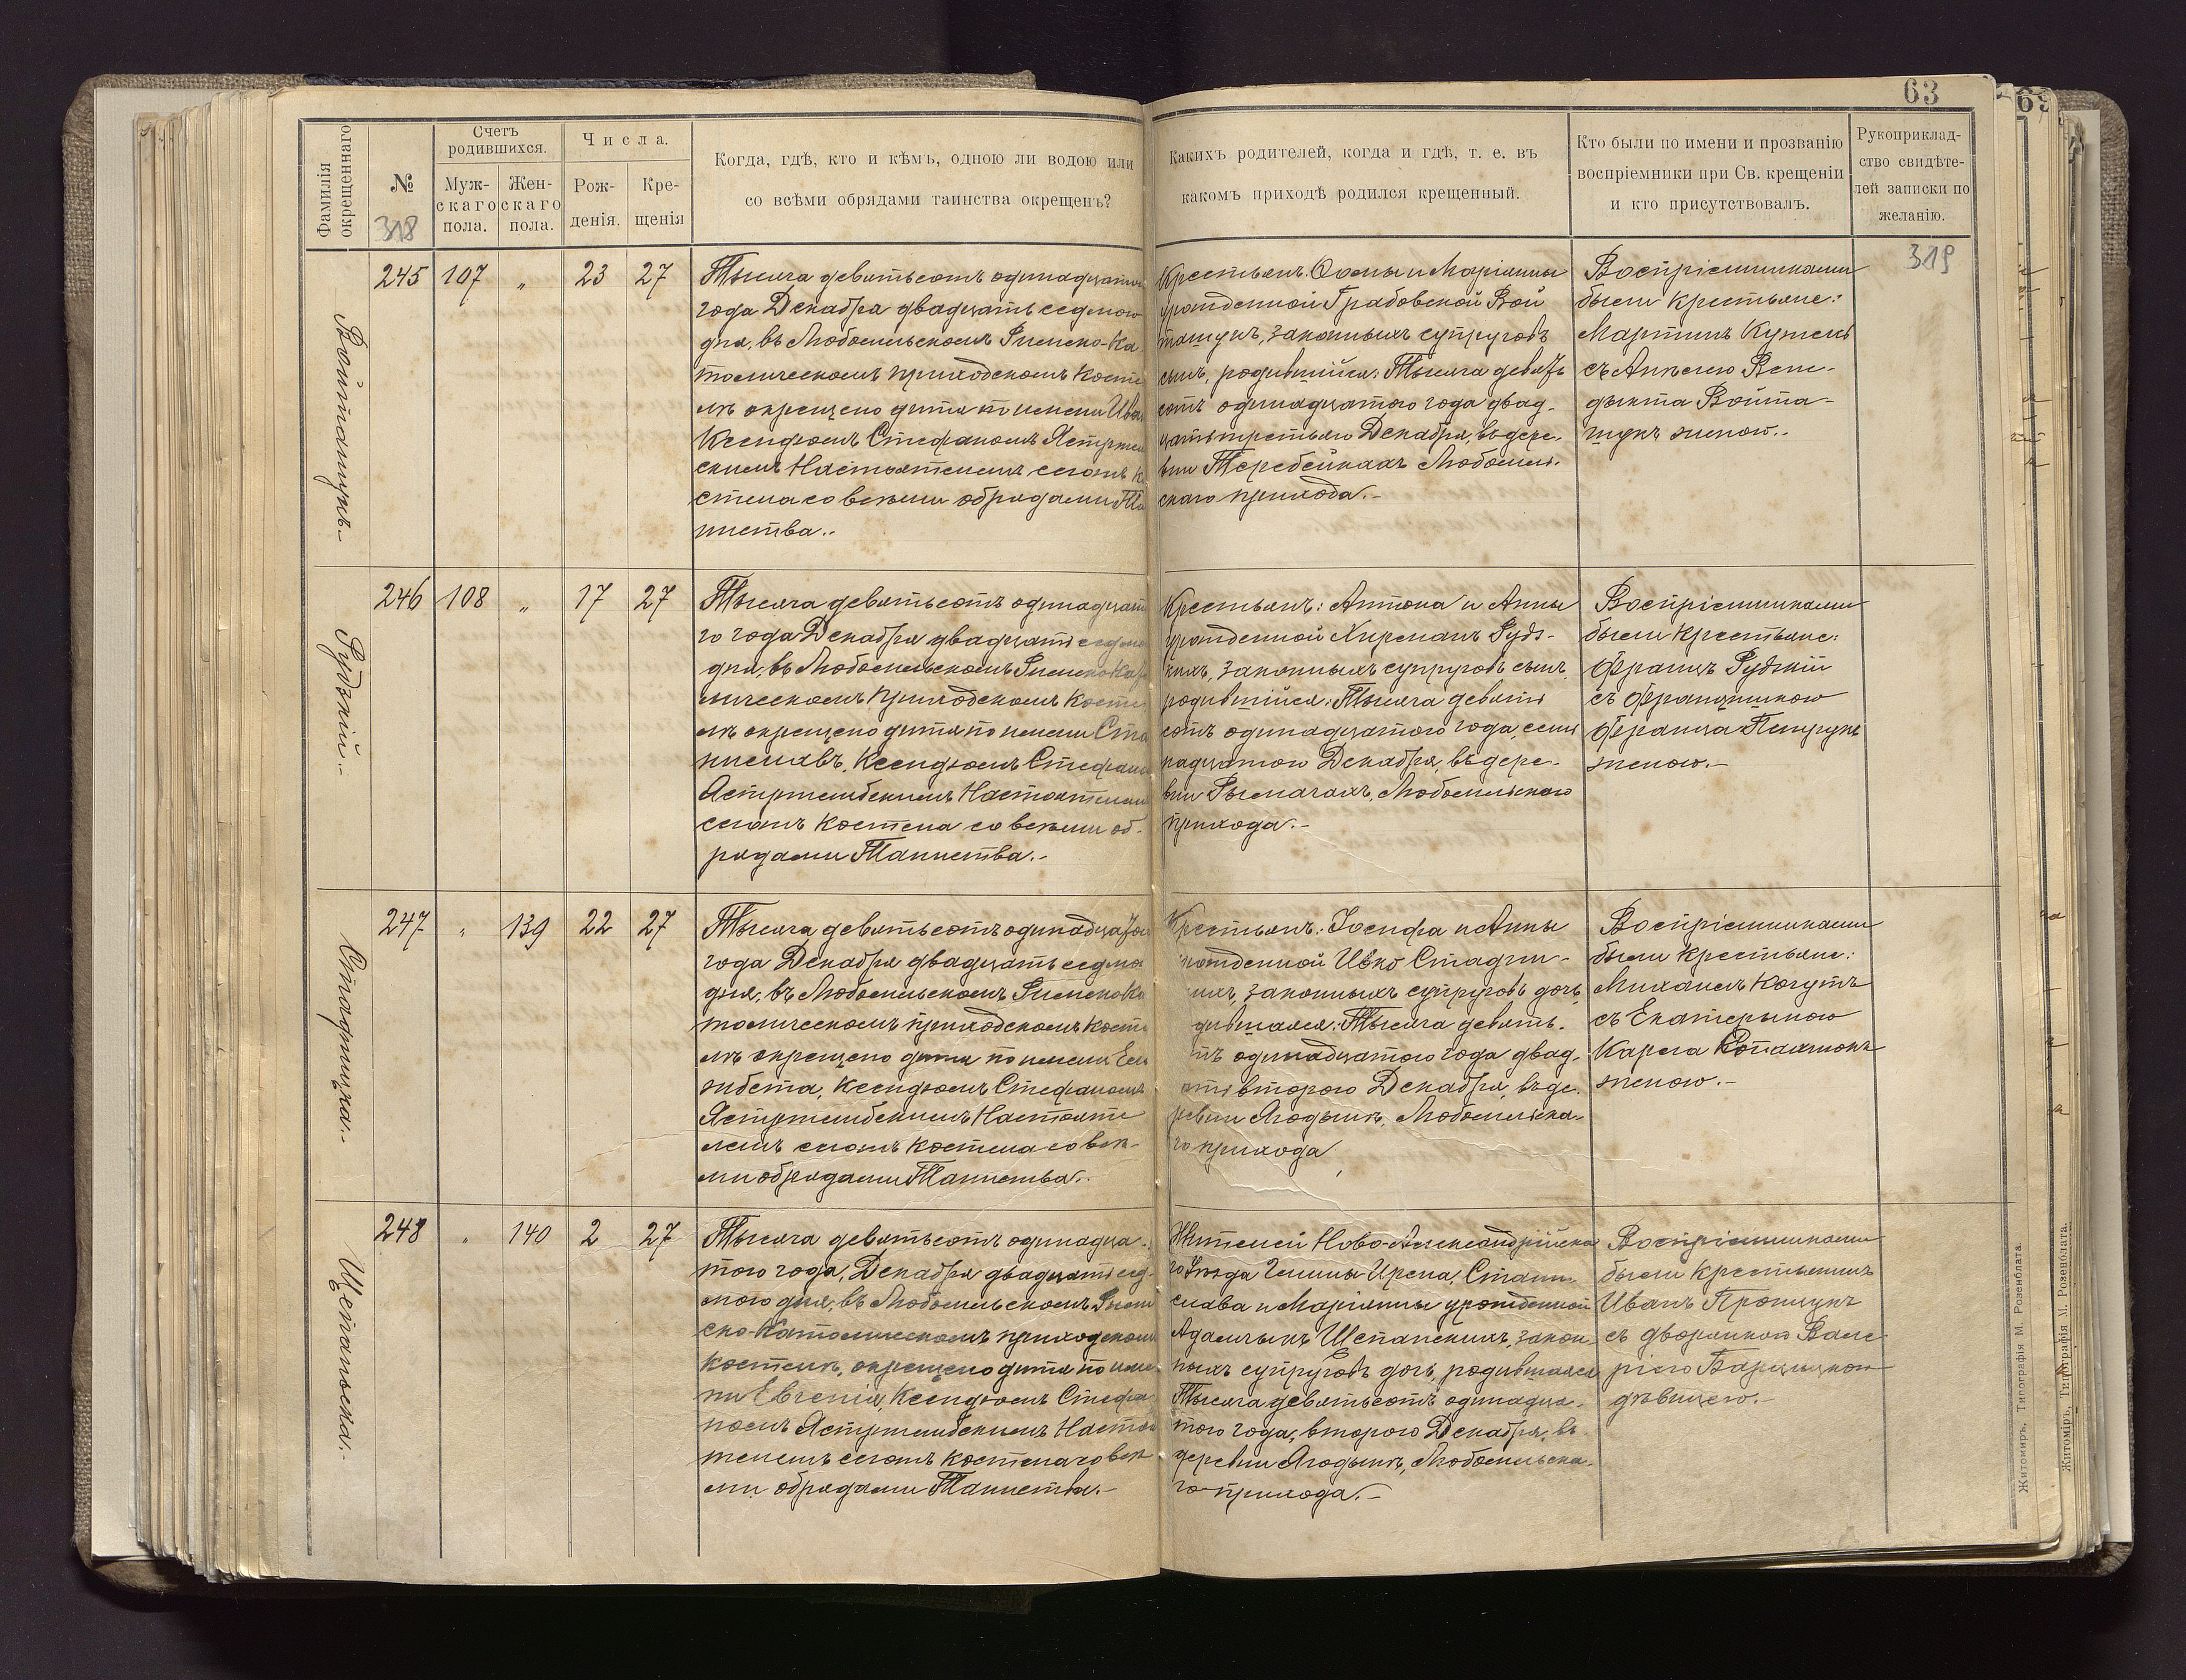 63
Фамилія окрещеннаго
№
318
Счетъ родившихся.
Муж-
скаго
пола.
Жен-
скаго
пола.
Числа.
Рож-
денія.
Кре-
щенія
Когда, гдѣ, кто и кѣмъ, одною ли водою или
со всѣми обрядами таинства окрещенъ?
Какихъ родителей, когда и гдѣ, т. е. въ
какомъ приходѣ родился крещенный.
Кто были по имени и прозванію
воспріемники при Св. крещеніи
и кто присутствовалъ.
Рукоприклад-
ство свидѣте-
лей записки по
желанію.
319
Войташукъ.-
245 107 „ 23 27
Тысяча девятьсотъ одинадцатаго
года Декабря двадцать седмого
дня, въ Любомльскомъ Римско-Ка
толическомъ приходскомъ косте
лѣ окрещено дитя по имени Иван
Ксендзомъ Стефаномъ Ястржем
скимъ Настоятелемъ сегожъ ко
стела со всѣми обрядами Та
инства..
Крестьянъ: Ѳомы и Маріанны
урожденной Грабовской Вой
ташукъ, законныхъ супруговъ
сынъ, родившійся: Тысяча девять
сотъ одинадцатого года двад-
цать третьяго Декабря, въ дере-
вни Теребейкахъ Любомль-
скаго прихода.-
Воспріемниками
были крестьяне:
Мартинъ Кужель
съ Анелею Вене-
дыкта Войта-
шукъ женою.-
Рудзкій.-
246 108 „ 17 27
Тысяча девятьсотъ одинадцата
го года Декабря двадцать седмо
дня, въ Любомльскомъ Римско Като
лическомъ приходскомъ косте
лѣ окрещено дитя по имени Ста
ниславъ, Ксендзомъ Стефаном
Ястржембскимъ Настоятелем
сегожъ костела со всѣми об-
рядами Таинства.-
Крестьянъ: Антона и Анны
урожденной Хирсманъ Рудз-
кихъ, законныхъ супруговъ сынъ,
родившійся: Тысяча девять
сотъ одинадцатого года, семь
надцатого Декабря, въ дере-
вни Рымачахъ, Любомльского
прихода.-
Воспріемниками
были крестьяне:
Францъ Рудзкій
съ Францишкою
Франца Петрукъ
женою.-
Стадницка.-
247 „ 139 22 27
Тысяча девятьсотъ одинадцатаго
года Декабря двадцать седмо
дня, въ Любомльскомъ Римско Ка
толическомъ приходскомъ косте
лѣ окрещено дитя по имени Ели
забета, Ксендзомъ Стефаномъ
Ястржембскимъ Настояте
лемъ сегожъ костела со всѣ-
ми обрядами Таинства.-
Крестьянъ: Іосифа и Анны
рожденной Ивко Стадни-
кихъ, законныхъ супруговъ дочь,
дившаяся: Тысяча девять-
тъ одинадцатого года двад-
ать второго Декабря, въ де-
ревни Ягодынѣ, Любомльска-
го прихода
Воспріемниками
были крестьяне:
Михаилъ Когутъ
съ Екатериною
Кароля
женою.-
Щепаньска.-
248 „ 140 2 27
Тысяча девятьсотъ одинадца-
того года, Декабря двадцать сед-
мого дня, въ Любомльскомъ Рим
ско-Католическомъ приходском
костелѣ, окрещено дитя по име
ни Евгенія, Ксендзомъ Стефа
номъ Ястржембскимъ Настоя
телемъ сегожъ костела со всѣ
ми обрядами Таинства.-
Жителей Ново-Александрійска
го Уѣзда Гмины Ирена, Стани-
слава и Маріанны урожденной
Адамчыкъ Щепанскихъ, закон-
ныхъ супруговъ дочь, родившаяся
Тысяча девятьсотъ одинадца-
того года, второго Декабря, въ
деревни Ягодынѣ, Любомльска-
го прихода.-
Воспріемниками
были крестьянинъ
Иванъ Прончукъ
съ дворянкою Вале-
ріею
дѣвицею.-
Житомиръ, Типографія М. Розенблата.
Житоміръ, Типографія М. Розенблата.